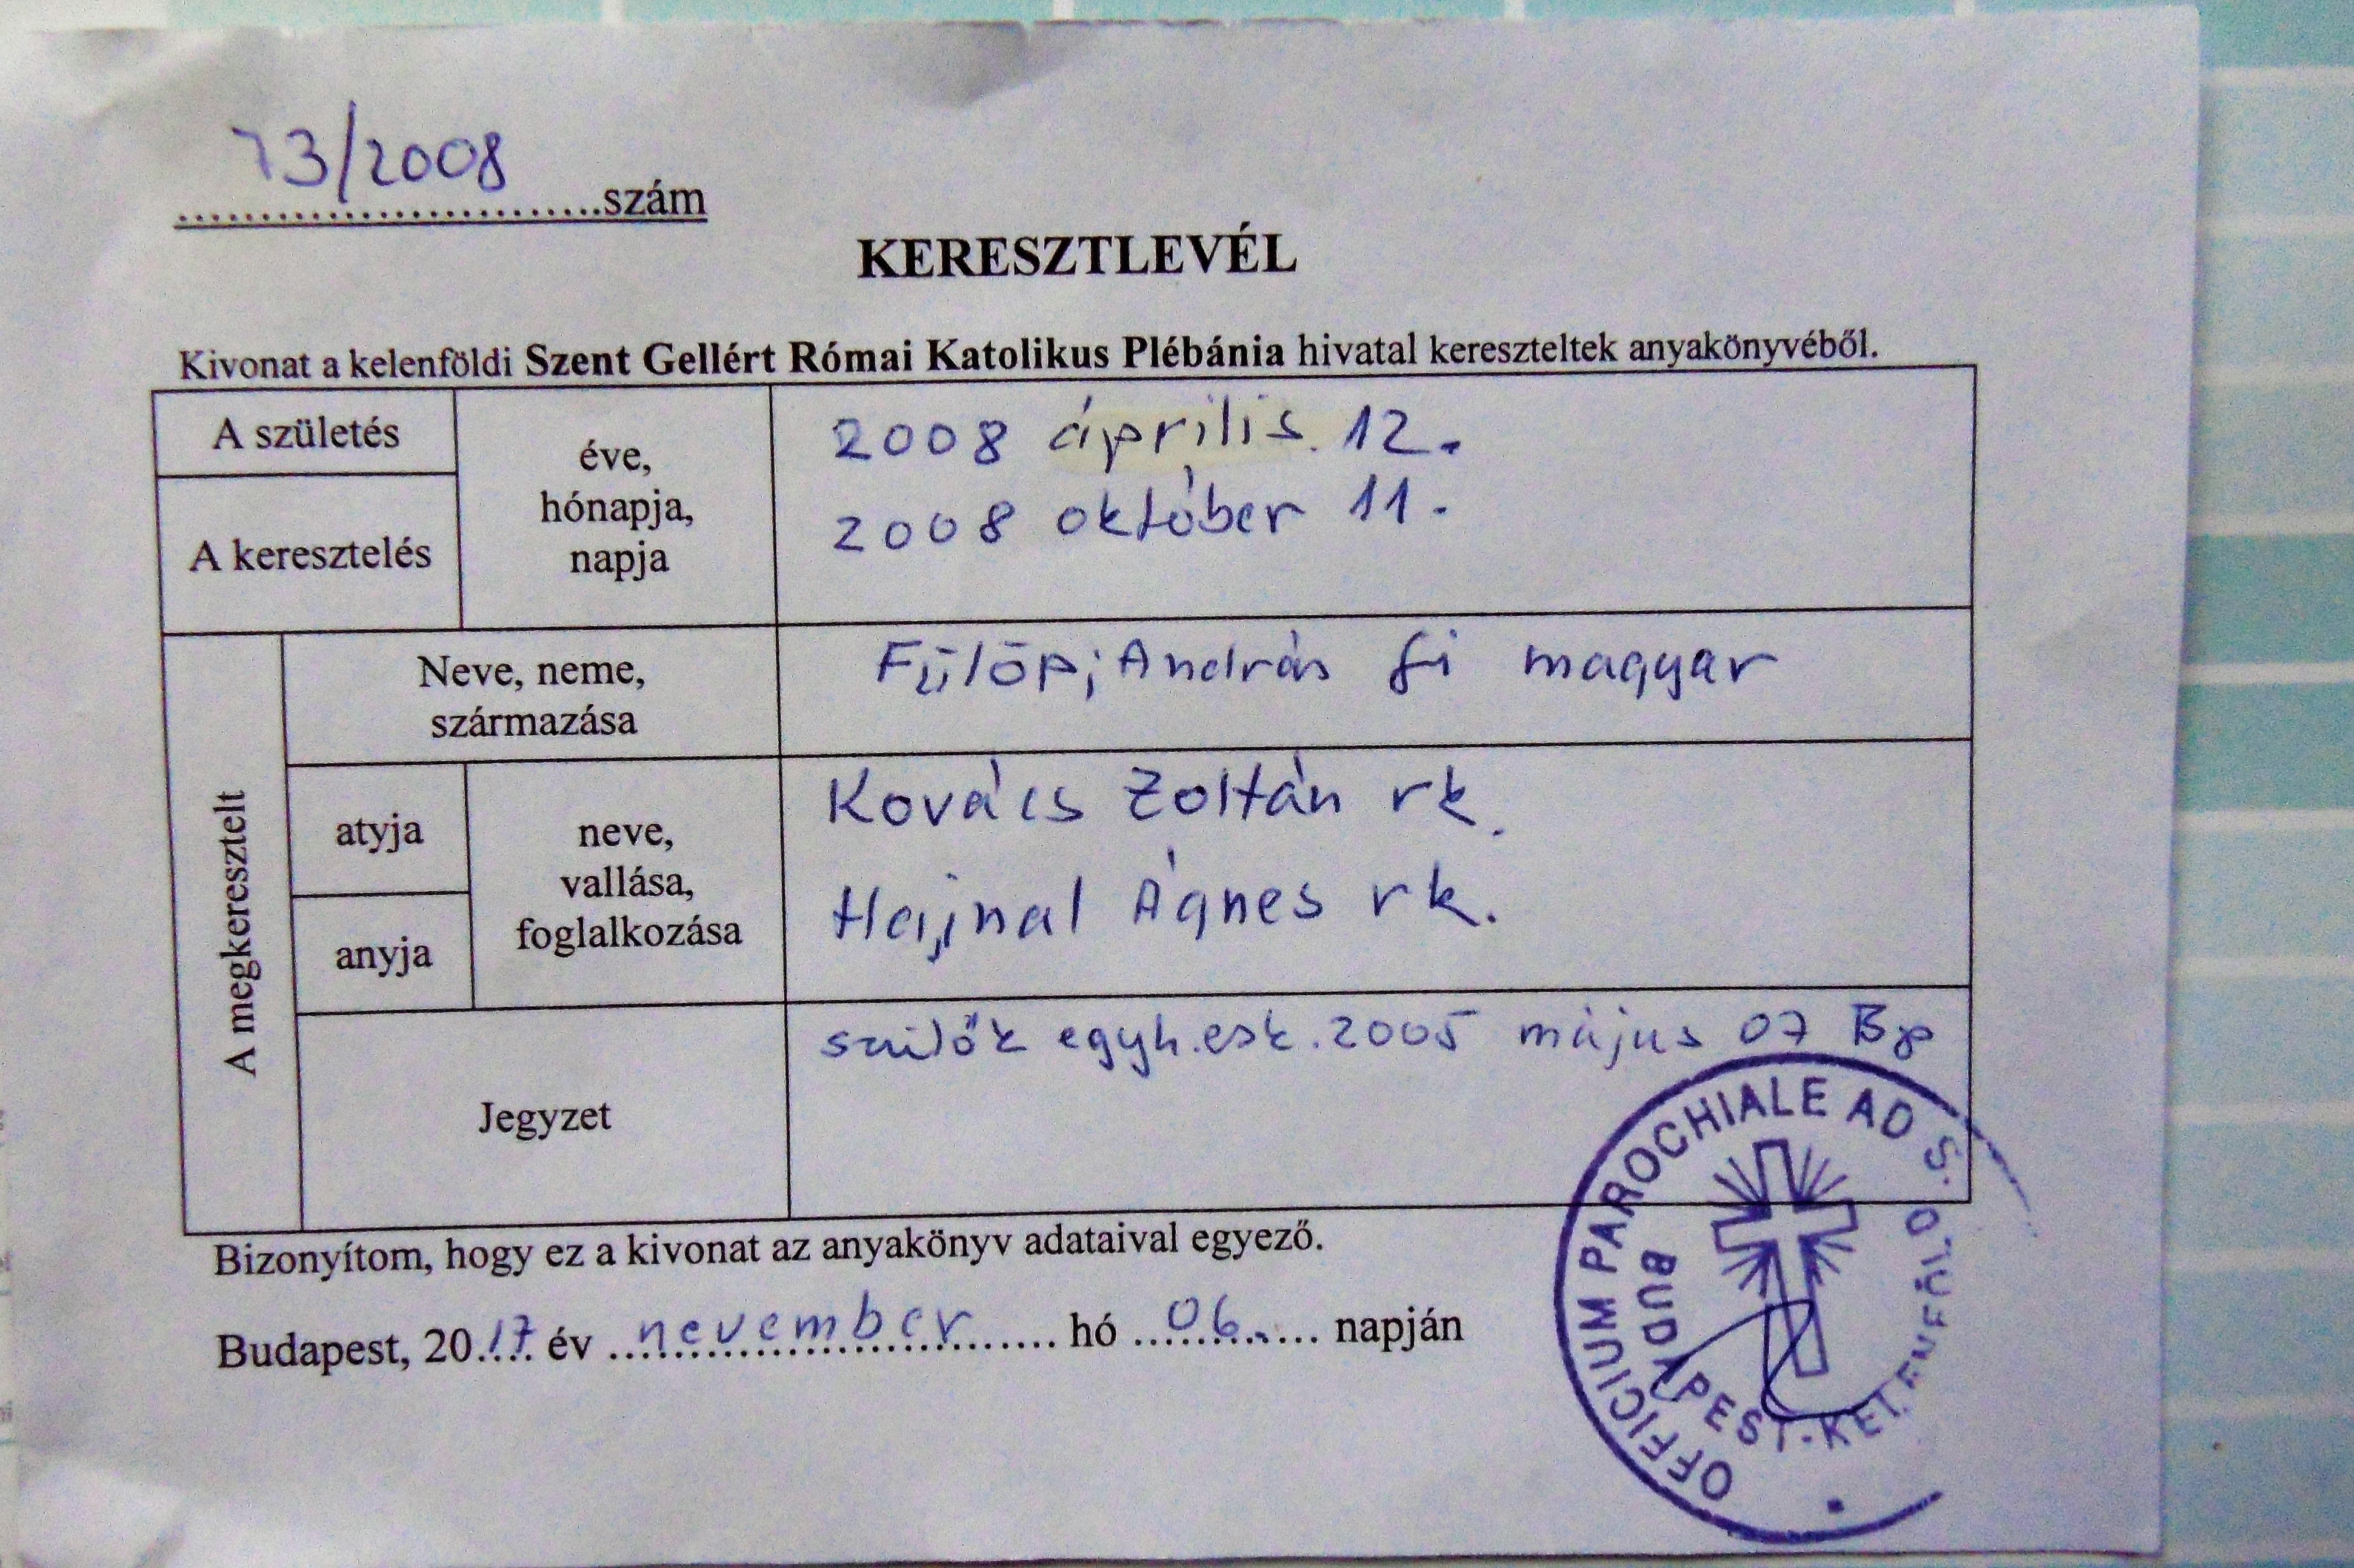 73/2008
..............................szám
KERESZTLEVÉL
Kivonat a kelenföldi Szent Gellért Római Katolikus Plébánia hivatal kereszteltek anyakönyvéből.
A születés
éve,
hónapja,
napja
2008 április. 12.
A keresztelés
2008 október 11.
A megkeresztelt
Neve, neme,
származása
Fülöp; András fi magyar
atyja
neve,
vallása,
foglalkozása
Kovács Zoltán rk.
anyja
Hajnal Ágnes rk.
Jegyzet
szülők egyh.esk.2005 május 07 Bp
Bizonyítom, hogy ez a kivonat az anyakönyv adataival egyező.
Budapest, 2017 év november hó 06. napján
OFFICIUM PAROCHIALE AD S.
BUDAPEST-KELENFÖLD